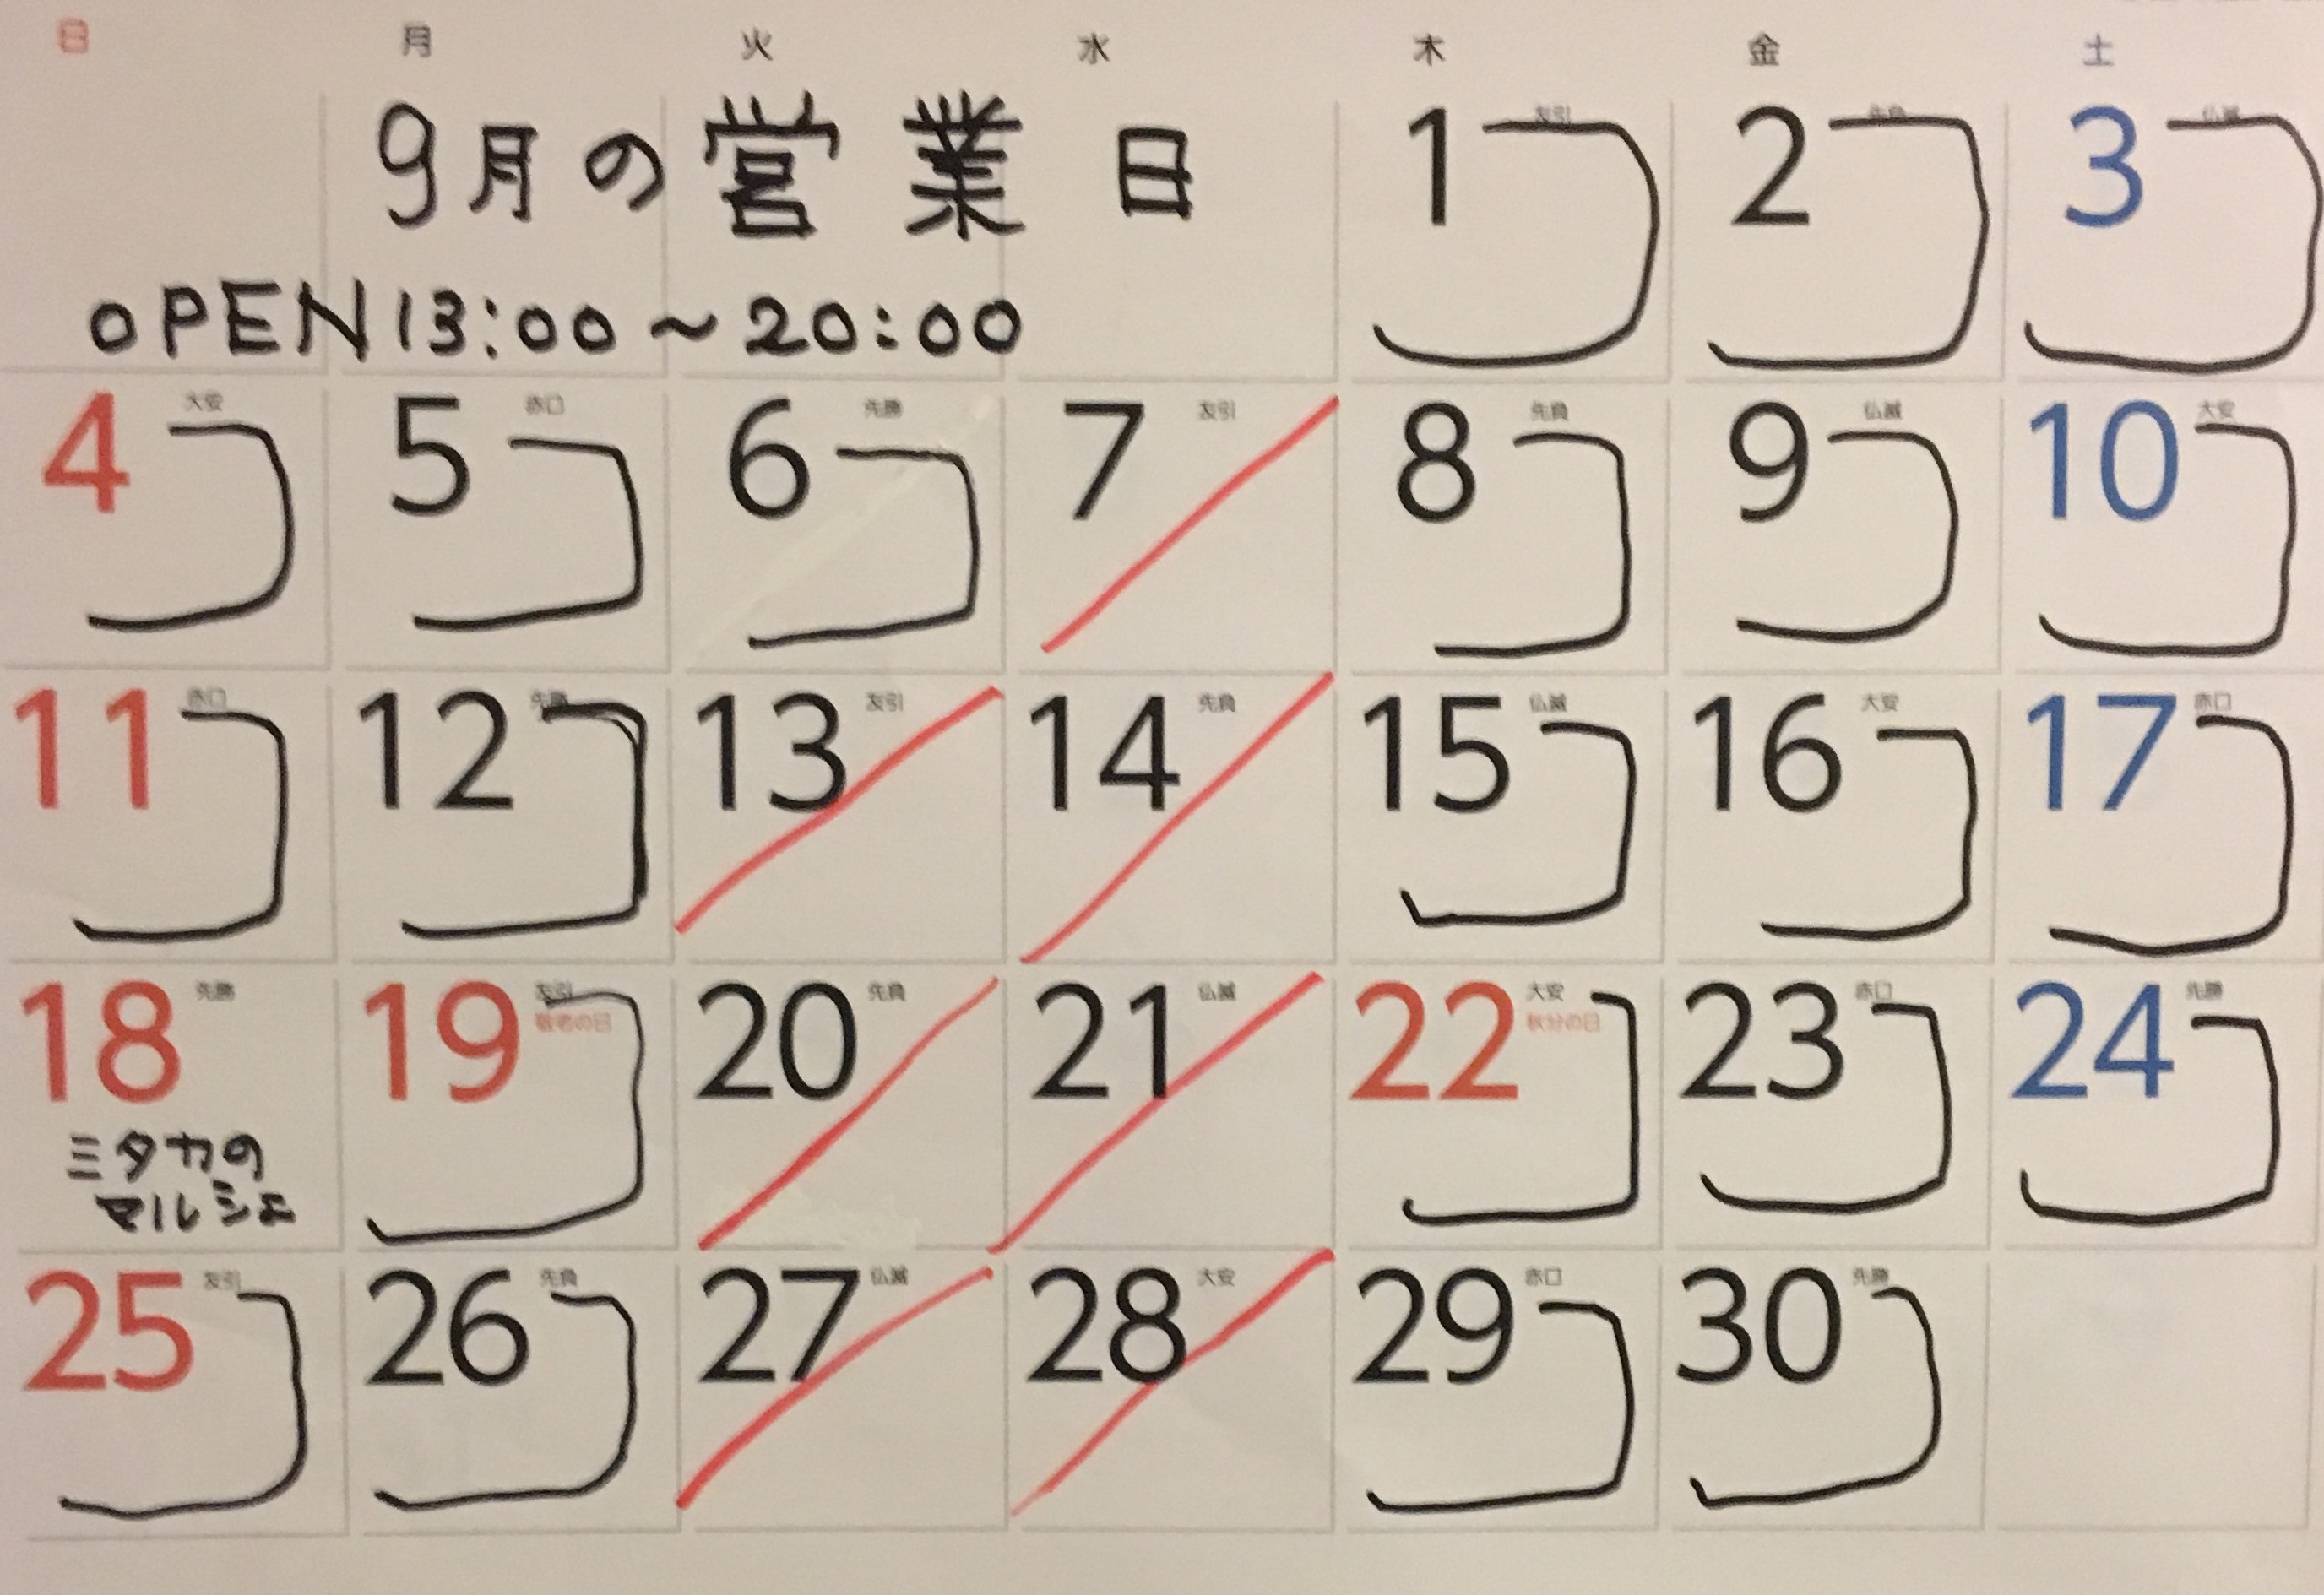 日 月 火 水 木 金 土
9月の営業日
OPEN 13:00～20:00
1 友引 2 先負 3 仏滅
4 大安 5 赤口 6 先勝 7 友引 8 先負 9 仏滅 10 大安
11 赤口 12 先勝 13 友引 14 先負 15 仏滅 16 大安 17 赤口
18 先勝 19 友引 20 先負 21 仏滅 22 大安 23 赤口 24 先勝
敬老の日 秋分の日
ミタカの
マルシェ
25 友引 26 先負 27 仏滅 28 大安 29 赤口 30 先勝